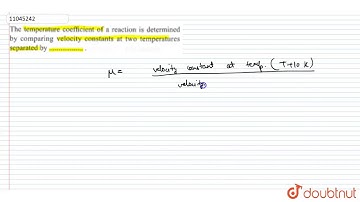 11045242
The temperature coefficient of a reaction is determined
by comparing velocity constants at two temperatures
separated by ................ .
μ = velocity constant at temp. (T+10 K)
velocity
doubtnut